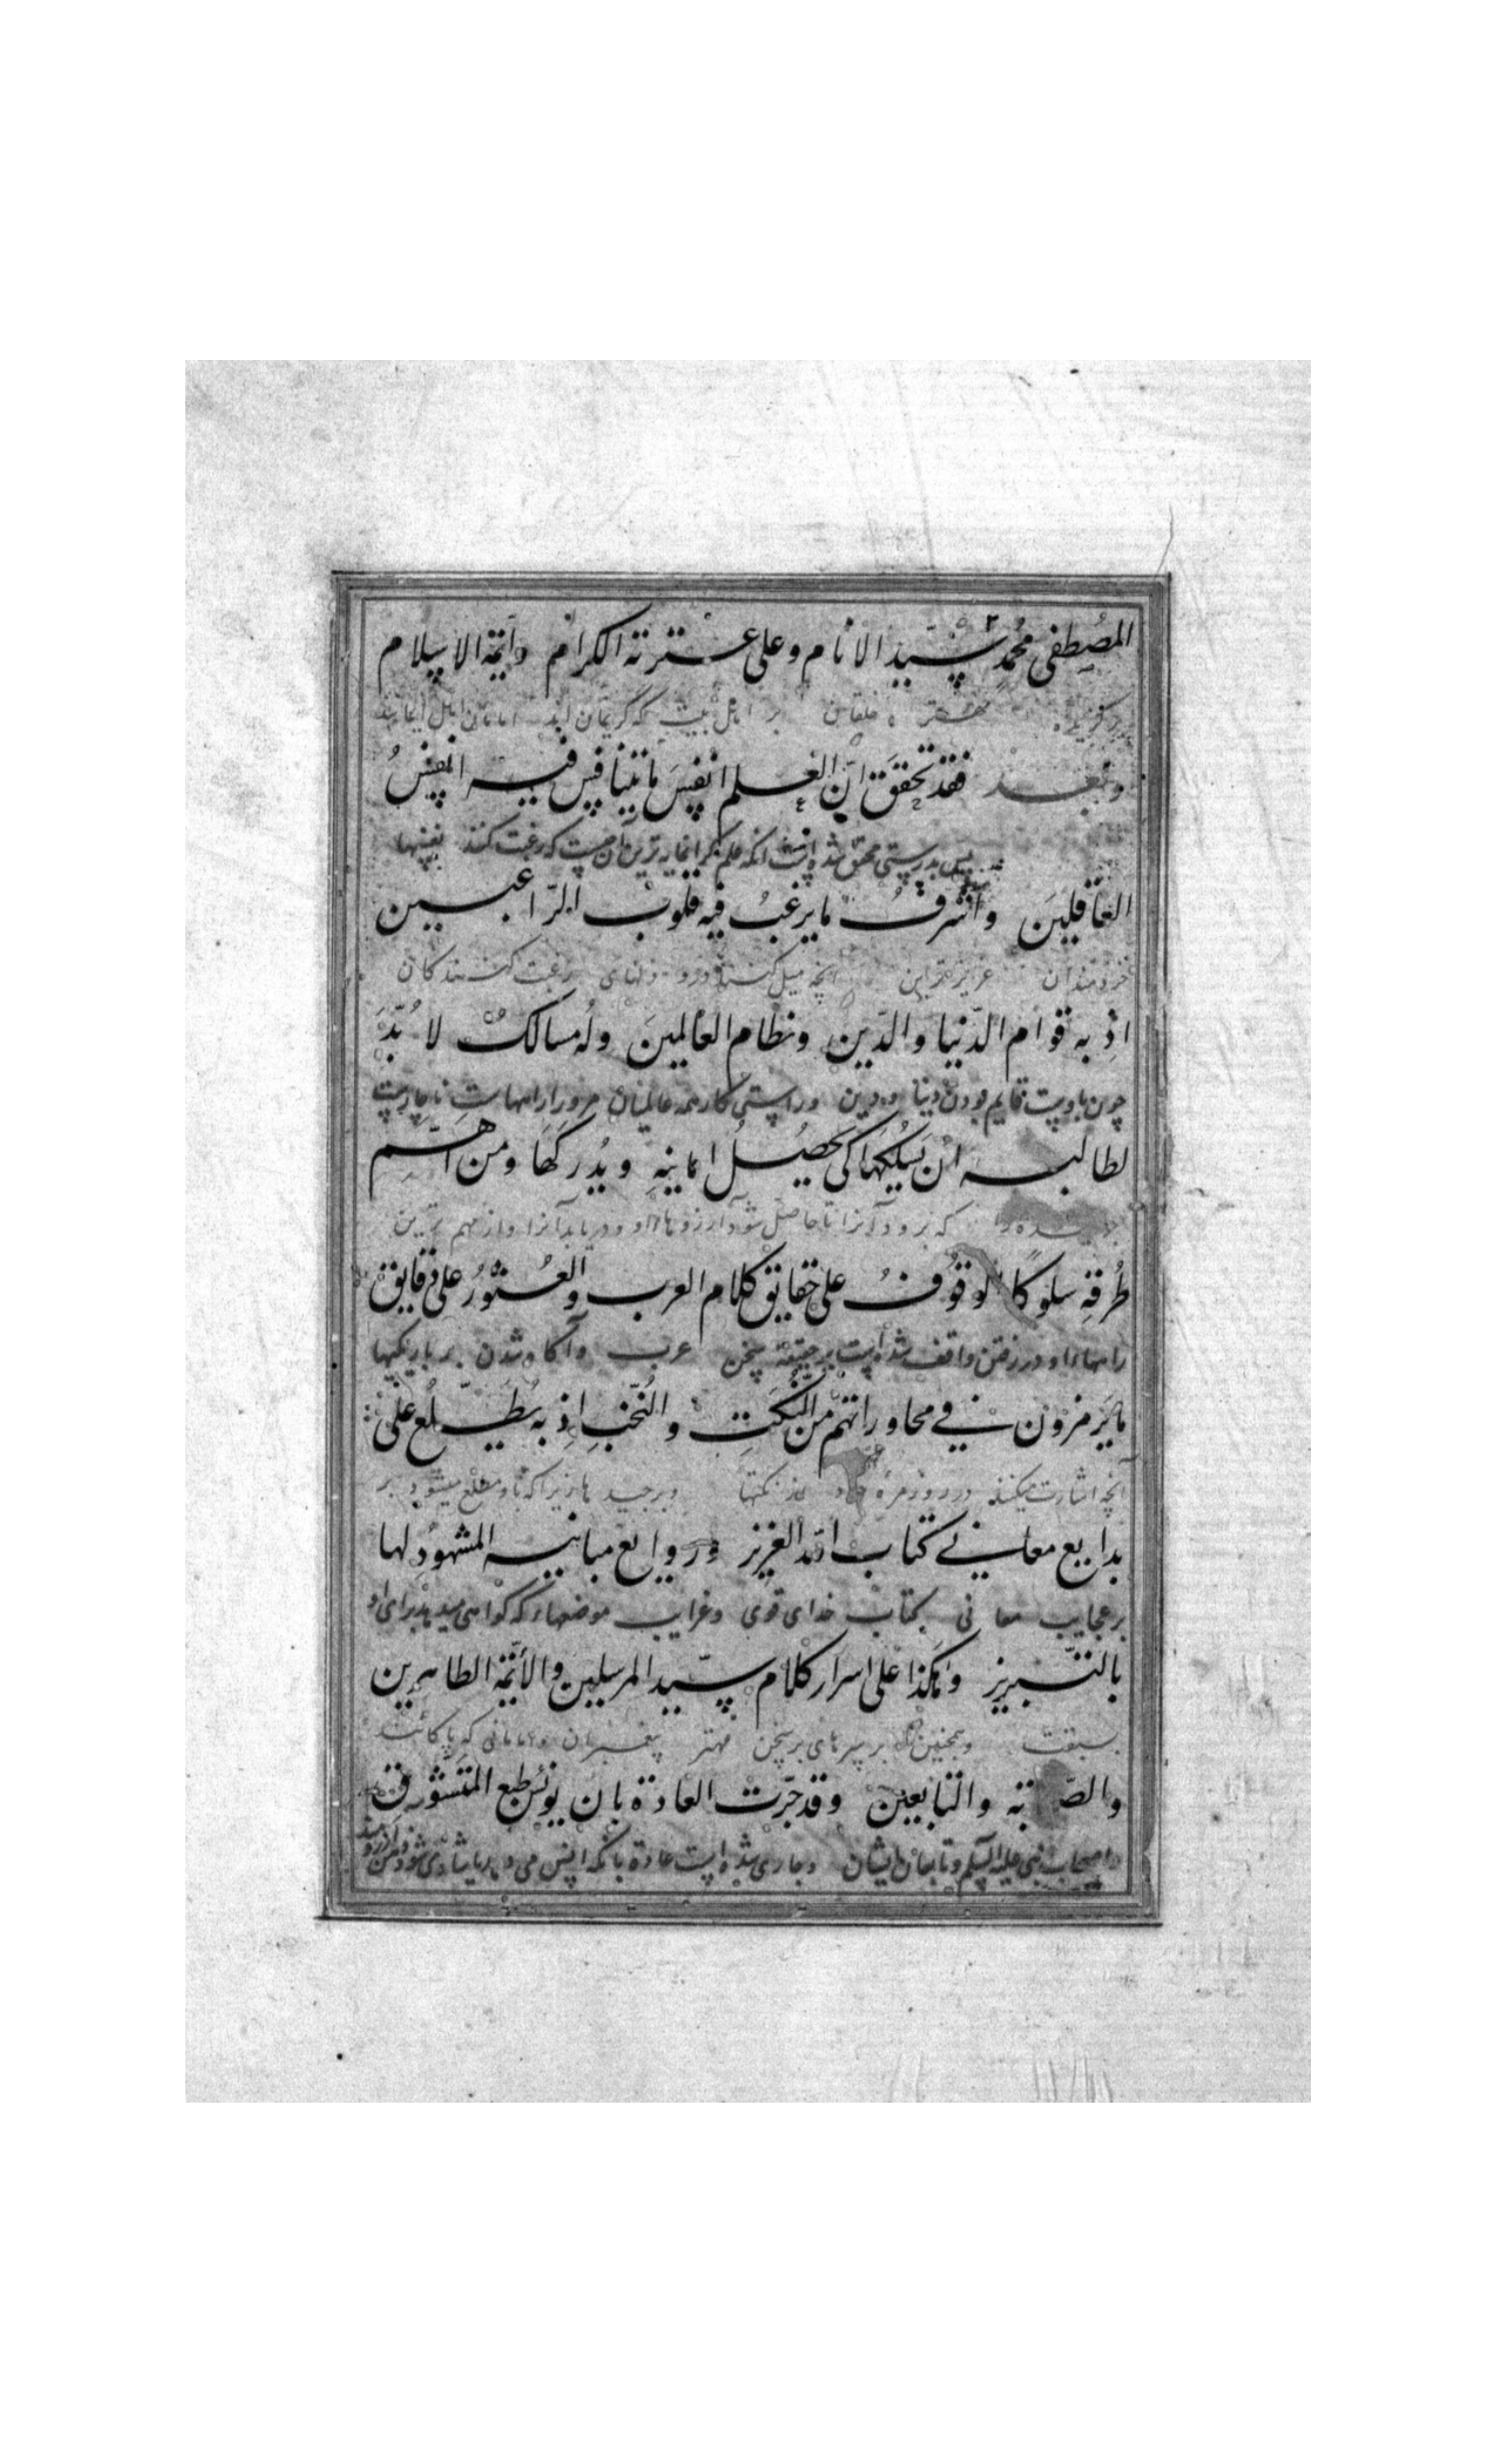 المصطفى محمد سيد الانام وعلى عترته الكرام وأئمة الاسلام
بر اهل بيت كه كريمان اند امامان اهل ايمانند
وبعد فقد تحقق ان العلم انفس ما يتنافس فيه انفس
پس بدرستى محقق شده است انكه علم كرانمايه ترين آن چيست كه رغبت كنند نفسها
العاقلين واشرف ما يرغب فيه قلوب الراغبين
خردمندان عزيزترين انچه ميل كنند درو دلهاى رغبت كنندكان
اذ به قوام الدنيا والدين ونظام العالمين وله مسالك لا بد
چون باوست قايم بودن دنيا ودين وراستى كار همه عالميان مرورا راههاست ناچارست
لطالبه ان يسلكها كى يحصل امانيه ويدركها ومن اهم
كه برود آنرا تا حاصل شود آرزوها او ودريابد آنرا واز مهم ترين
طرقه سلوكا الوقوف على حقايق كلام العرب والعثور على دقايق
راهها او در رفتن واقف شدنست بر حقيقة سخن عرب وآكاه شدن بر باريكيها
ما يرمزون في محاوراتهم من النكت والنخب اذ به يطلع على
آنچه اشارت ميكنند در روزمرهٔ از نكتها وبرچيدها زيرا كه باو مطلع ميشود بر
بدايع معاني كتاب الله العزيز وروايع مبانيه المشهود لها
بر عجايب معانى كتاب خداى قوى وغرايب موضعها كه كواهى ميدهد براى او
بالتبريز وهكذا على اسرار كلام سيد المرسلين والأئمة الطاهرين
بسبقت وهمچنين بر سرهاى سخن مهتر پيغمبران وامامانى كه پاكانند
والتابعين وقد جرت العادة بان
اصحاب نبى عليه السلم وتابعان ايشان وجارى شده است عادة بانكه